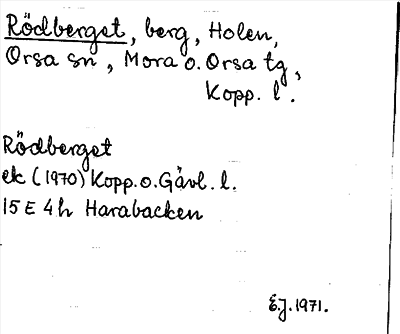 Rödberget, berg, Holen,
Orsa sn, Mora o. Orsa tg,
Kopp. l.
Rödberget
ek (1970) Kopp. o. Gävl. l.
15 E 4h Harabacken
E.J. 1971.